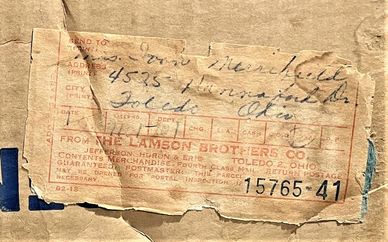 SEND TO
Mrs. Ivan Merrifield
ADDRESS
(PRINT)
4525 Hannaford Dr.
CITY
(PRINT)
Toledo Ohio
DEPT. CHG. A. CASH
FROM THE LAMSON BROTHERS CO.
JEFFERSON, HURON & ERIE TOLEDO 2, OHIO
CONTENTS MERCHANDISE - FOURTH CLASS MAIL - RETURN POSTAGE
GUARANTEED POSTMASTER: THIS PARCEL
MAY BE OPENED FOR POSTAL INSPECTION IF
NECESSARY.
15765-41